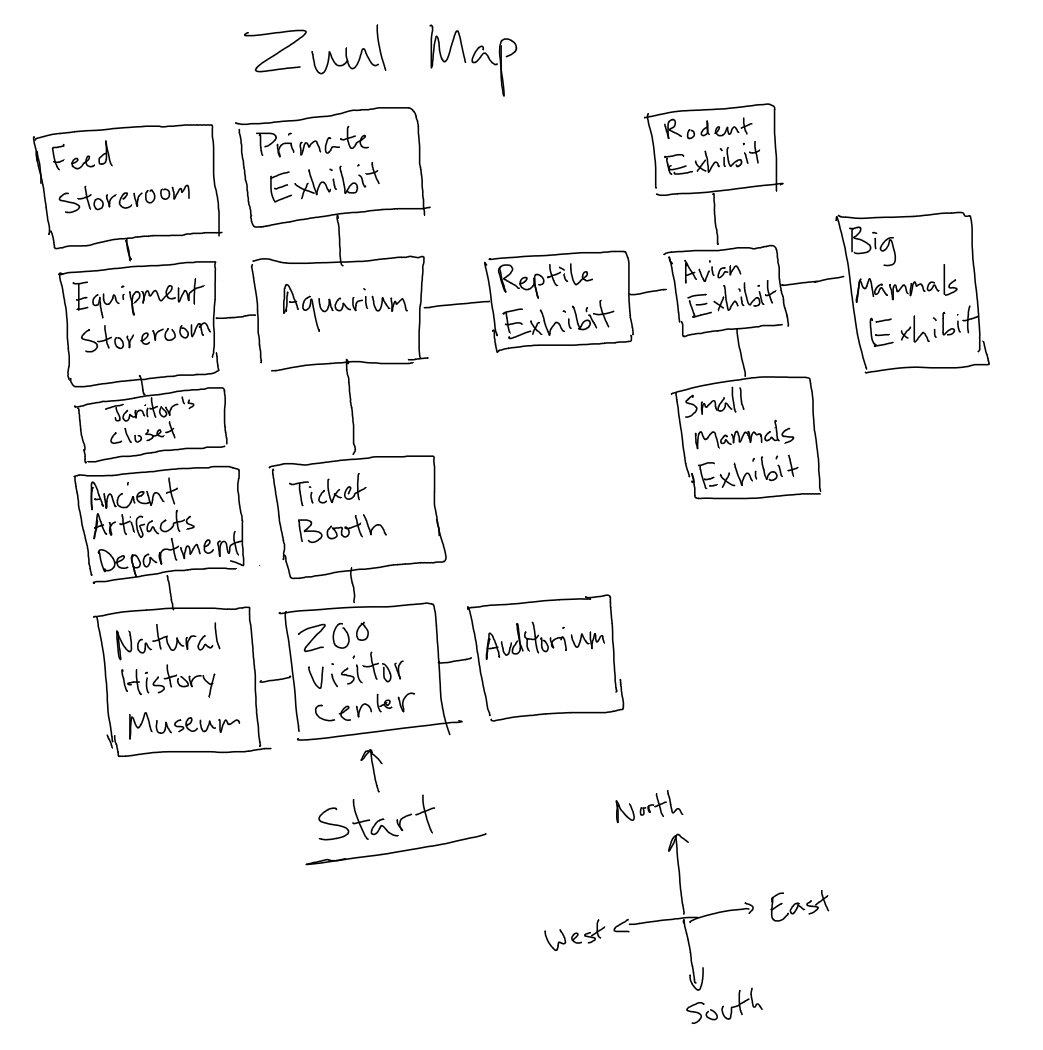 Zuul Map
Feed
Storeroom
Primate
Exhibit
Rodent
Exhibit
Equipment
Storeroom
Aquarium
Reptile
Exhibit
Avian
Exhibit
Big
Mammals
Exhibit
Janitor's
Closet
Small
Mammals
Exhibit
Ancient
Artifacts
Department
Ticket
Booth
Natural
History
Museum
ZOO
Visitor
Center
Auditorium
Start
North
West
East
South